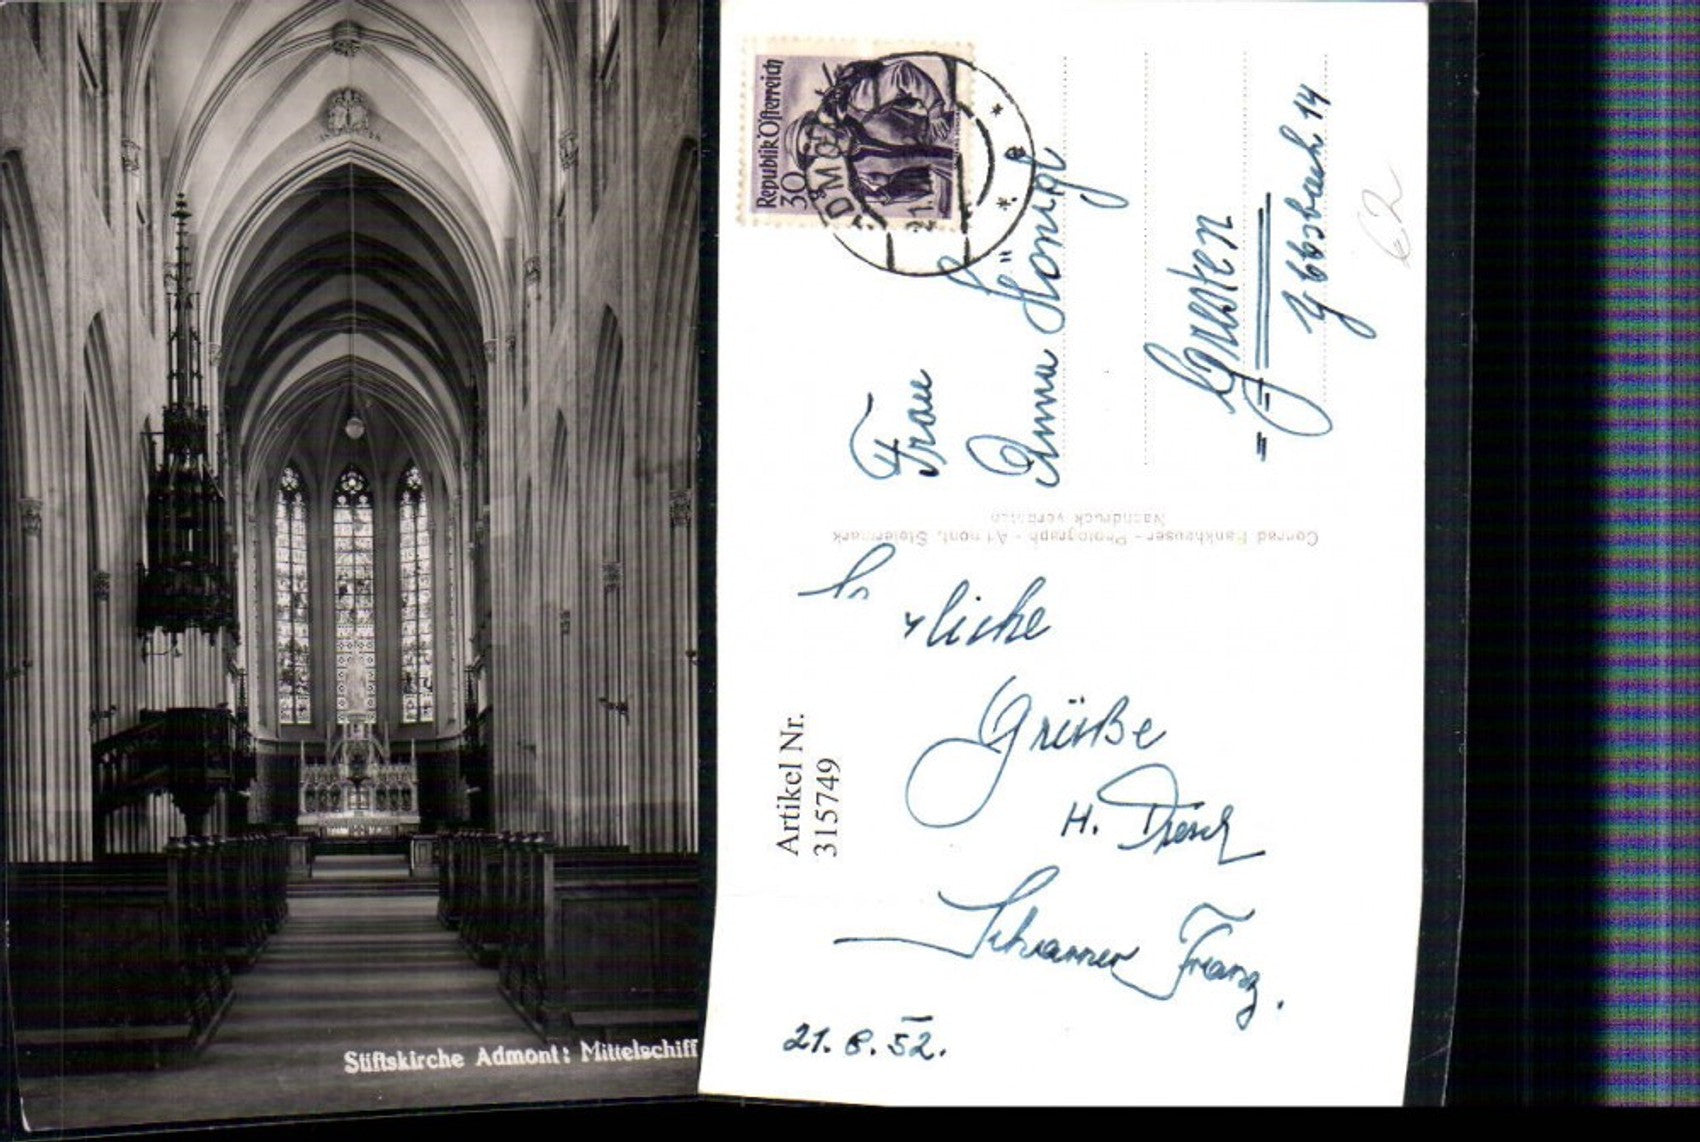 Stiftskirche Admont: Mittelschiff
Republik Österreich
30
ADMO
21.V
Frau
Anna Hönigl
Gresten
Ybbsbach 14
62
Conrad Fankhauser - Photograph - Admont, Steiermark
Nachdruck verboten
liche
Grüße
H.
Franz.
21. 8. 52.
Artikel Nr.
315749